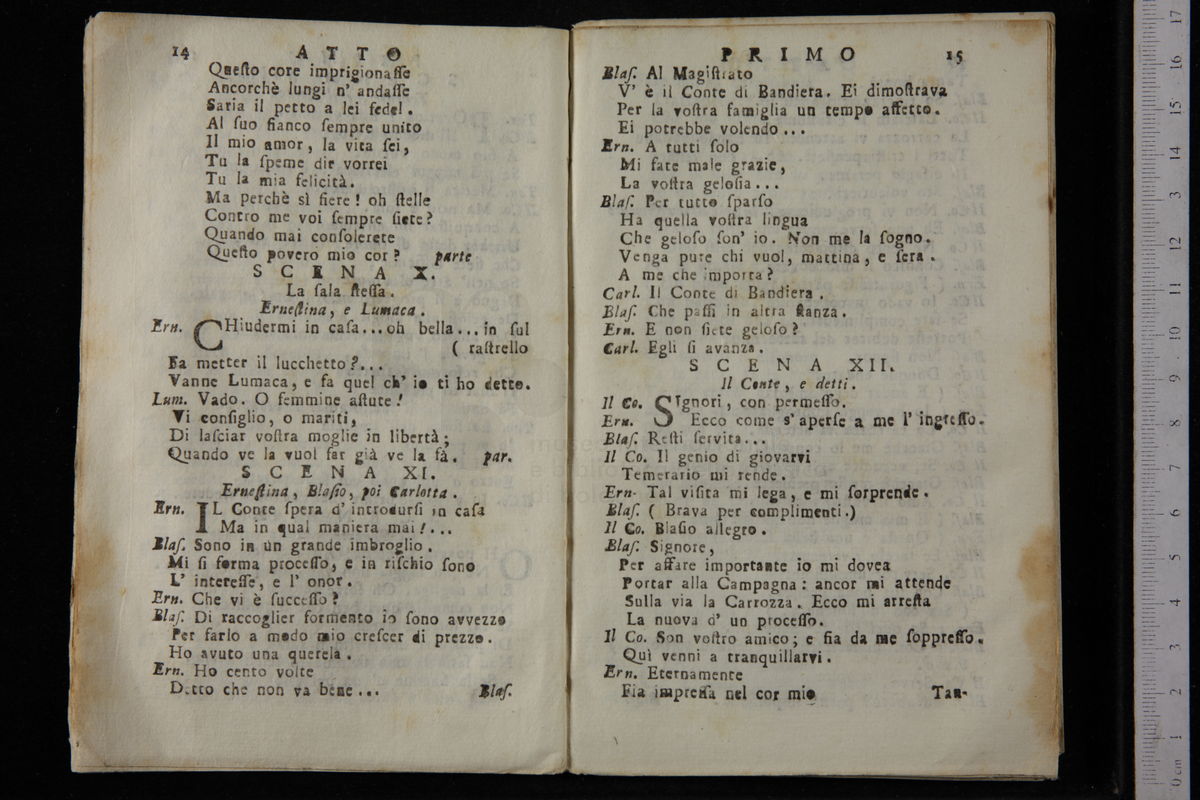 14 ATTO
Queſto core imprigionaſſe
Ancorchè lungi n' andaſſe
Saria il petto a lei fedel.
Al ſuo fianco ſempre unito
Il mio amor, la vita ſei,
Tu la ſpeme dir vorrei
Tu la mia felicità.
Ma perchè sì fiere! oh ſtelle
Contro me voi ſempre ſiete?
Quando mai conſolerete
Queſto povero mio cor? parte
SCENA X.
La ſala ſteſſa.
Erneſtina, e Lumaca.
Ern. CHiudermi in caſa...oh bella...in ſul
( raſtrello
Fa metter il lucchetto?...
Vanne Lumaca, e fa quel ch' io ti ho detto.
Lum. Vado. O femmine aſtute!
Vi conſiglio, o mariti,
Di laſciar voſtra moglie in libertà;
Quando ve la vuol far già ve la fà. par.
SCENA XI.
Erneſtina, Blaſio, poi Carlotta.
Ern. IL Conte ſpera d' introdurſi in caſa
Ma in qual maniera mai!...
Blaſ. Sono in un grande imbroglio.
Mi ſi forma proceſſo, e in riſchio ſono
L' intereſſe, e l' onor.
Ern. Che vi è ſucceſſo?
Blaſ. Di raccoglier formento io ſono avvezzo
Per farlo a modo mio creſcer di prezzo.
Ho avuto una querela.
Ern. Ho cento volte
Detto che non va bene... Blaſ.
PRIMO 15
Blaſ. Al Magiſtrato
V' è il Conte di Bandiera. Ei dimoſtrava
Per la voſtra famiglia un tempo affetto.
Ei potrebbe volendo...
Ern. A tutti ſolo
Mi fate male grazie,
La voſtra geloſia...
Blaſ. Per tutto ſparſo
Ha quella voſtra lingua
Che geloſo ſon' io. Non me la ſogno.
Venga pure chi vuol, mattina, e ſera.
A me che importa?
Carl. Il Conte di Bandiera.
Blaſ. Che paſſi in altra ſtanza.
Ern. E non ſiete geloſo?
Carl. Egli ſi avanza.
SCENA XII.
Il Conte, e detti.
Il Co. SIgnori, con permeſſo.
Ern. Ecco come s' aperſe a me l' ingreſſo.
Blaſ. Reſti ſervita...
Il Co. Il genio di giovarvi
Temerario mi rende.
Ern- Tal viſita mi lega, e mi ſorprende.
Blaſ. ( Brava per complimenti.)
Il Co. Blaſio allegro.
Blaſ. Signore,
Per affare importante io mi dovea
Portar alla Campagna: ancor mi attende
Sulla via la Carrozza. Ecco mi arreſta
La nuova d' un proceſſo.
Il Co. Son voſtro amico; e ſia da me ſoppreſſo.
Quì venni a tranquillarvi.
Ern. Eternamente
Fia impreſſa nel cor mio Tan-
0 cm 1 2 3 4 5 6 7 8 9 10 11 12 13 14 15 16 17